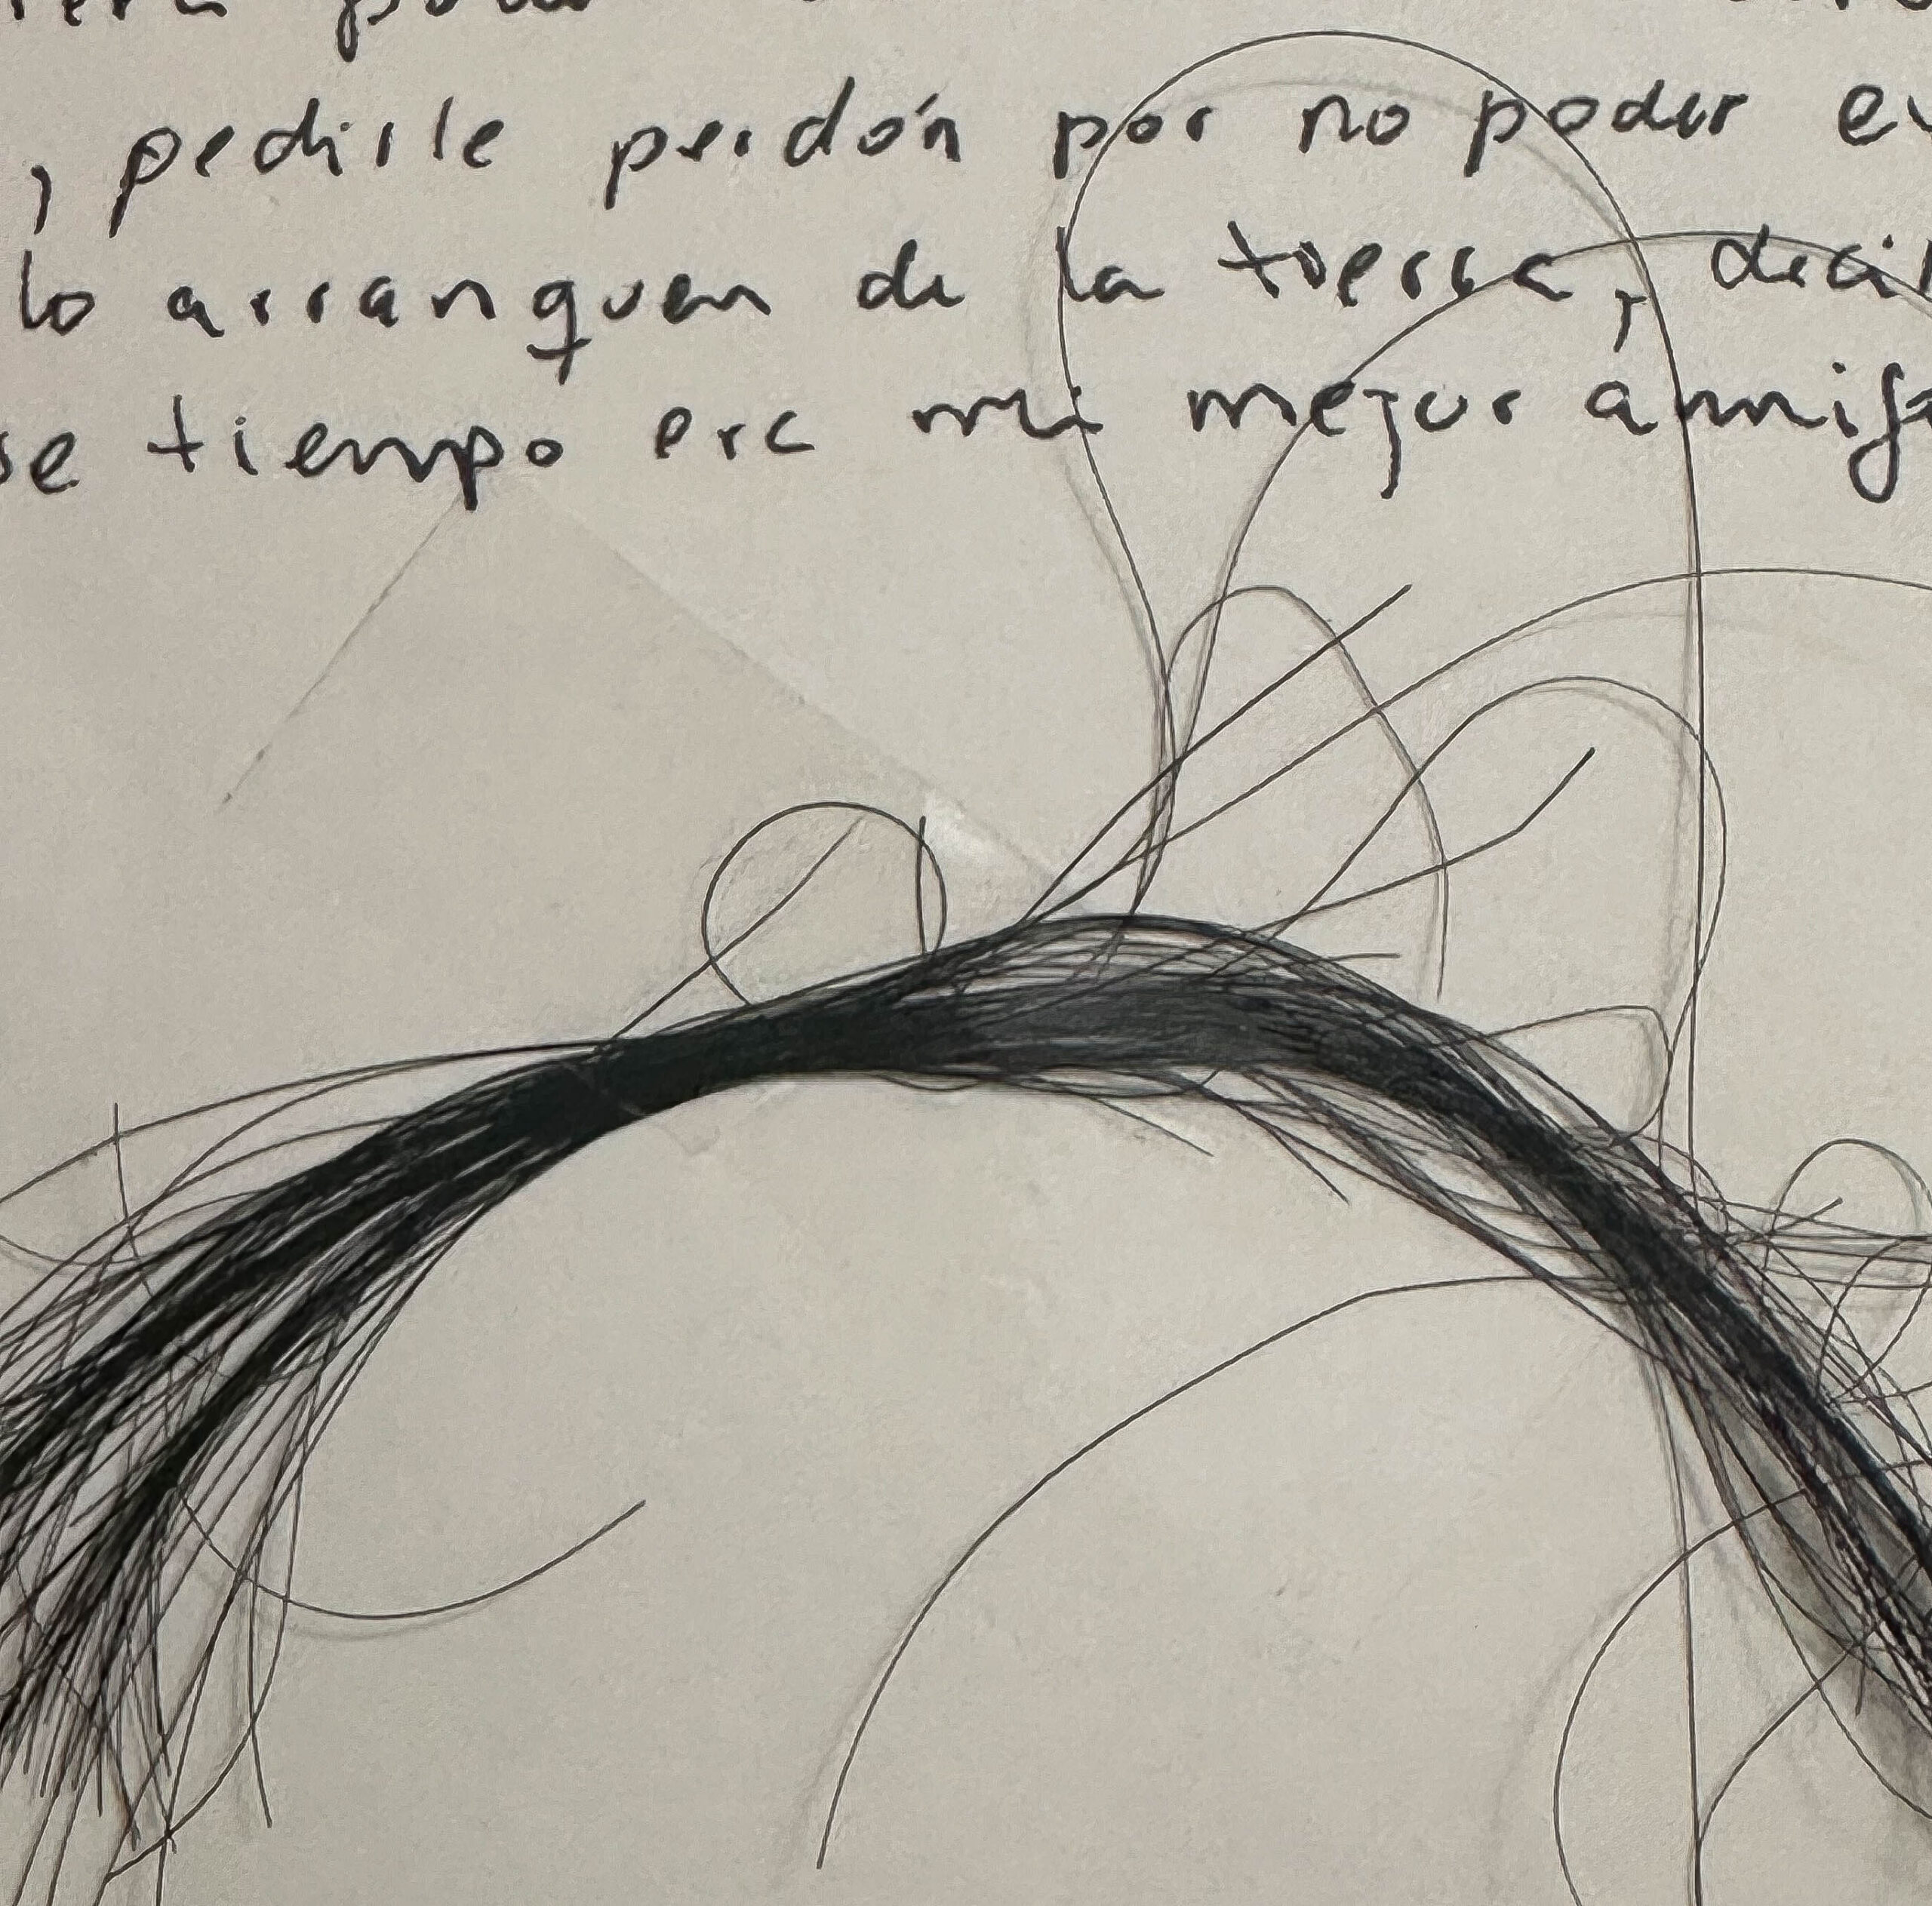 , pedirle perdón por no poder
lo arranquen de la tierra, decir
se tiempo era mi mejor